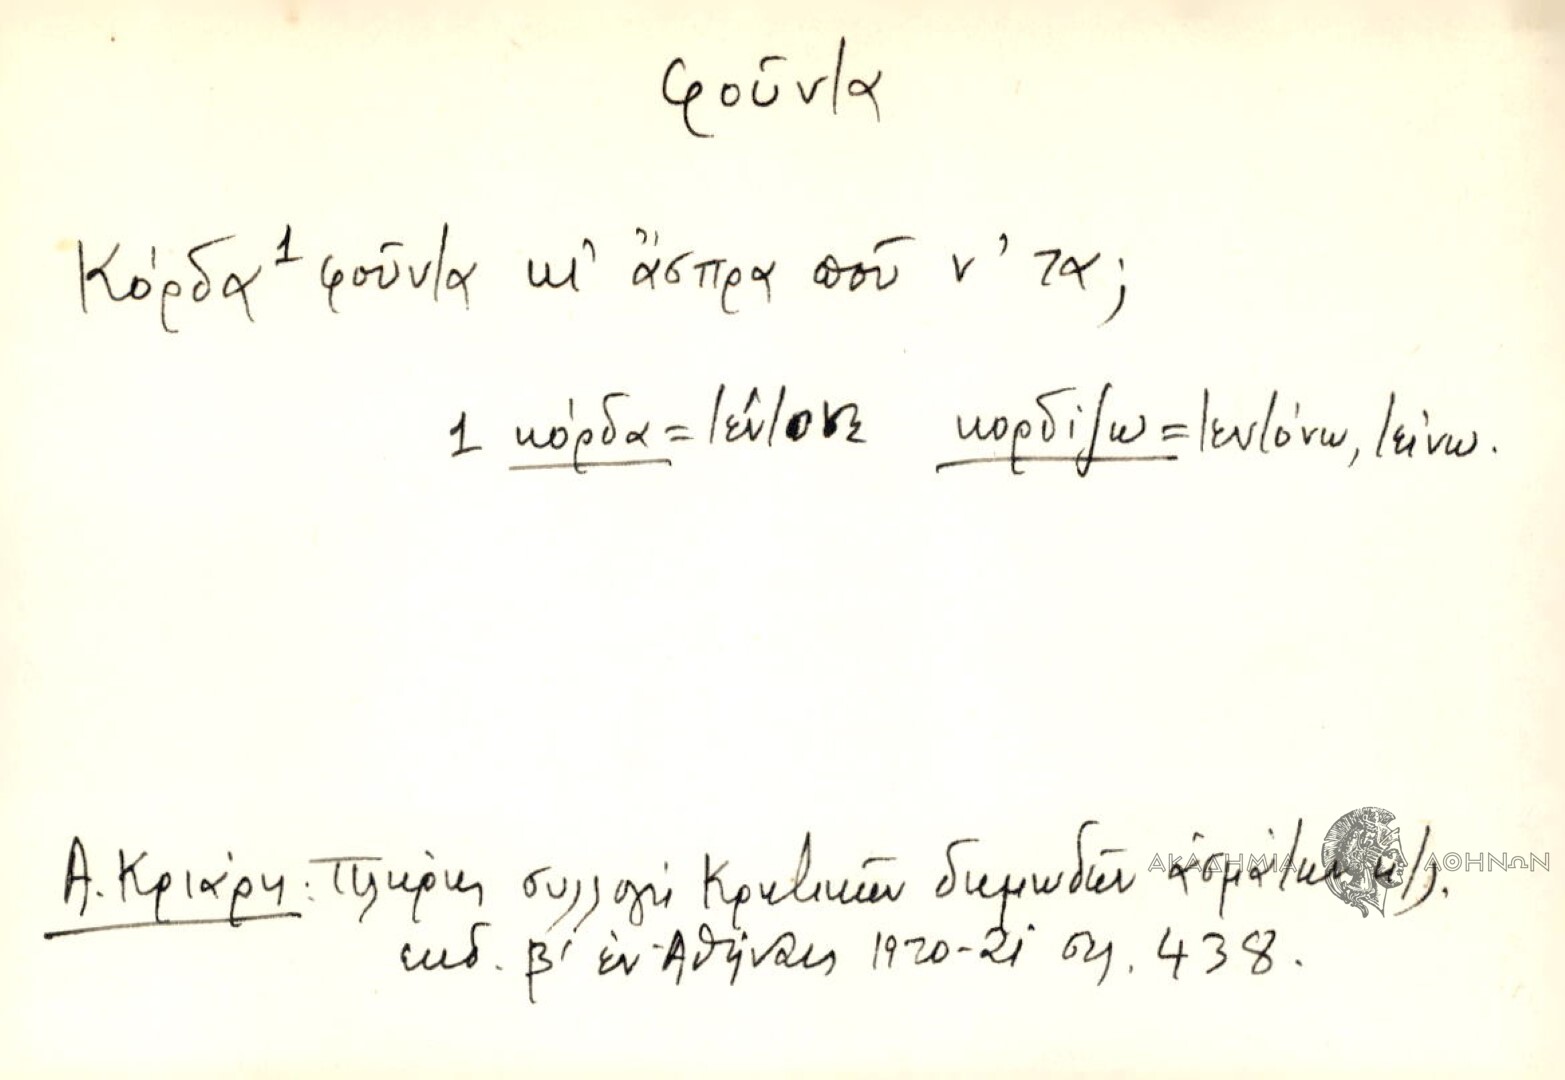 φοῦντα
Κόρδα¹ φοῦντα κι' ἄσπρα ποῦ ν' τα;
1 κόρδα = τέντονε κορδίζω = τεντόνω, τείνω.
Α. Κριάρη: Πλήρης συλλογὴ Κρητικῶν δημωδῶν ἀσμάτων κτλ.
ἐκδ. β' ἐν Ἀθήναις 1920-21 σελ. 438.
ΑΚΑΔΗΜΙΑ ΑΘΗΝΩΝ